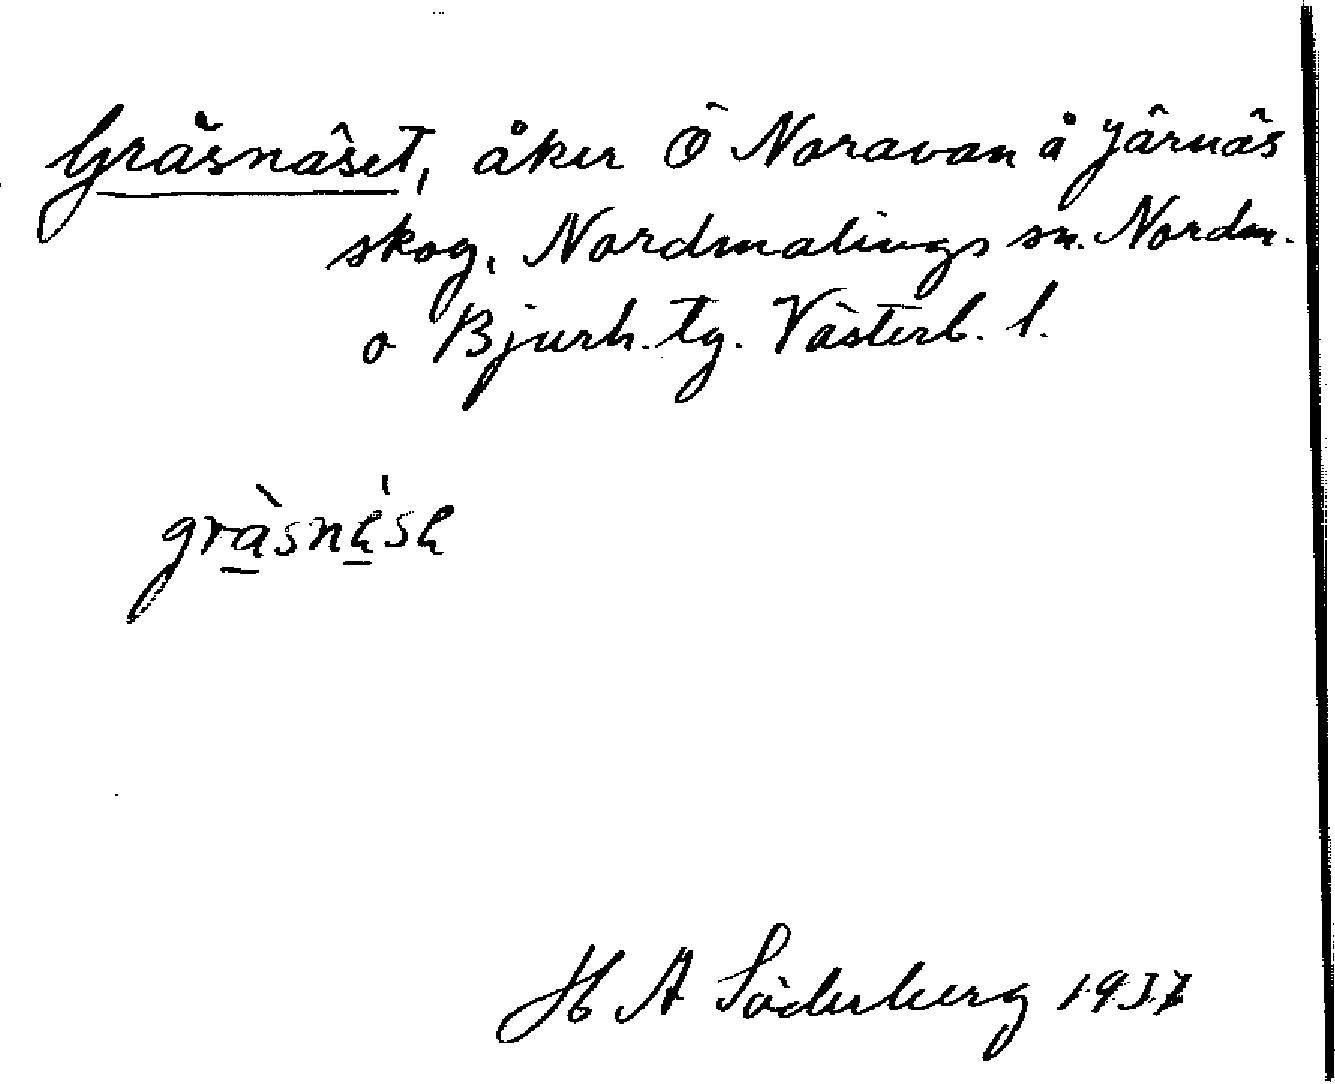 Gräsnäset, åker Ö Noravan å Järnäs
skog, Nordmalings sn. Nordm.
o Bjurh. tg. Västerb. l.
gràsnése
H A Söderberg